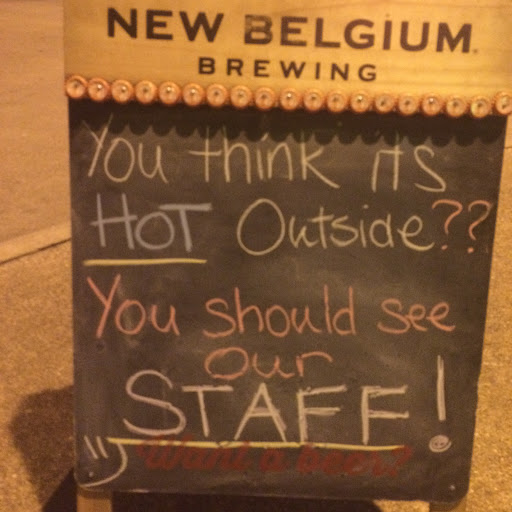 NEW BELGIUM
BREWING
You think its
HOT Outside??
You should see
our
STAFF!
Want a beer?